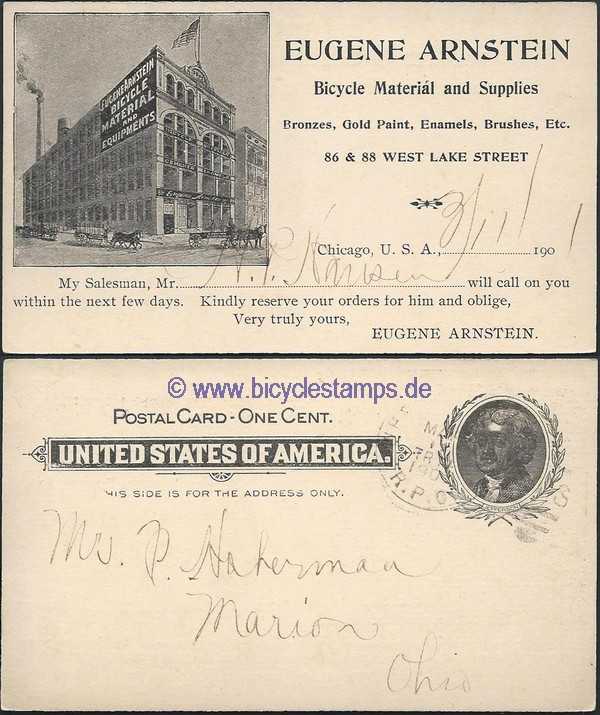 EUGENE ARNSTEIN
BICYCLE
MATERIAL
AND
EQUIPMENTS
EUGENE ARNSTEIN
Bicycle Material and Supplies
Bronzes, Gold Paint, Enamels, Brushes, Etc.
86 & 88 WEST LAKE STREET
Chicago, U. S. A., 3/11/ 1901
My Salesman, Mr. H. P. Hansen will call on you
within the next few days. Kindly reserve your orders for him and oblige,
Very truly yours,
EUGENE ARNSTEIN.
© www.bicyclestamps.de
POSTAL CARD - ONE CENT.
UNITED STATES OF AMERICA.
THIS SIDE IS FOR THE ADDRESS ONLY.
R.P.O.
JEFFERSON
Mr. P. Haberman
Marion
Ohio